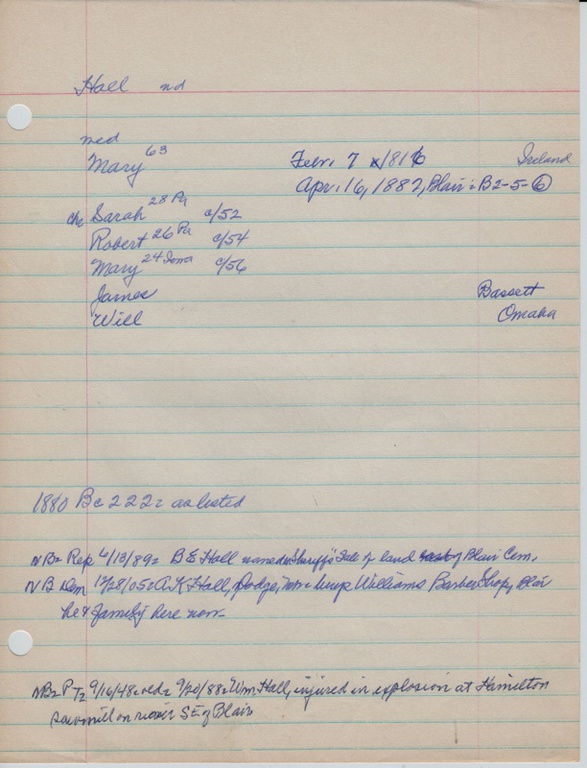 Hall nd
med
Mary 63 Febr. 7 1816 Ireland
Apr. 16, 1882, Blair: B2-5-6
ch Sarah 28 Pa c/52
Robert 26 Pa c/54
Mary 24 Iowa c/56
James Bassett
Will Omaha
1880 Bc 222: as listed
NB= Rep 4/13/89= B E Hall named in Sheriff's Sale of land of Blair Cem.
NB Dem 12/28/05= A.K Hall, Dodge, Williams Barber Shop, Blair
he & family here now-
NB= P T= 9/16/48= red= 9/20/88= Wm Hall, injured in explosion at Hamilton
sawmill on river SE of Blair